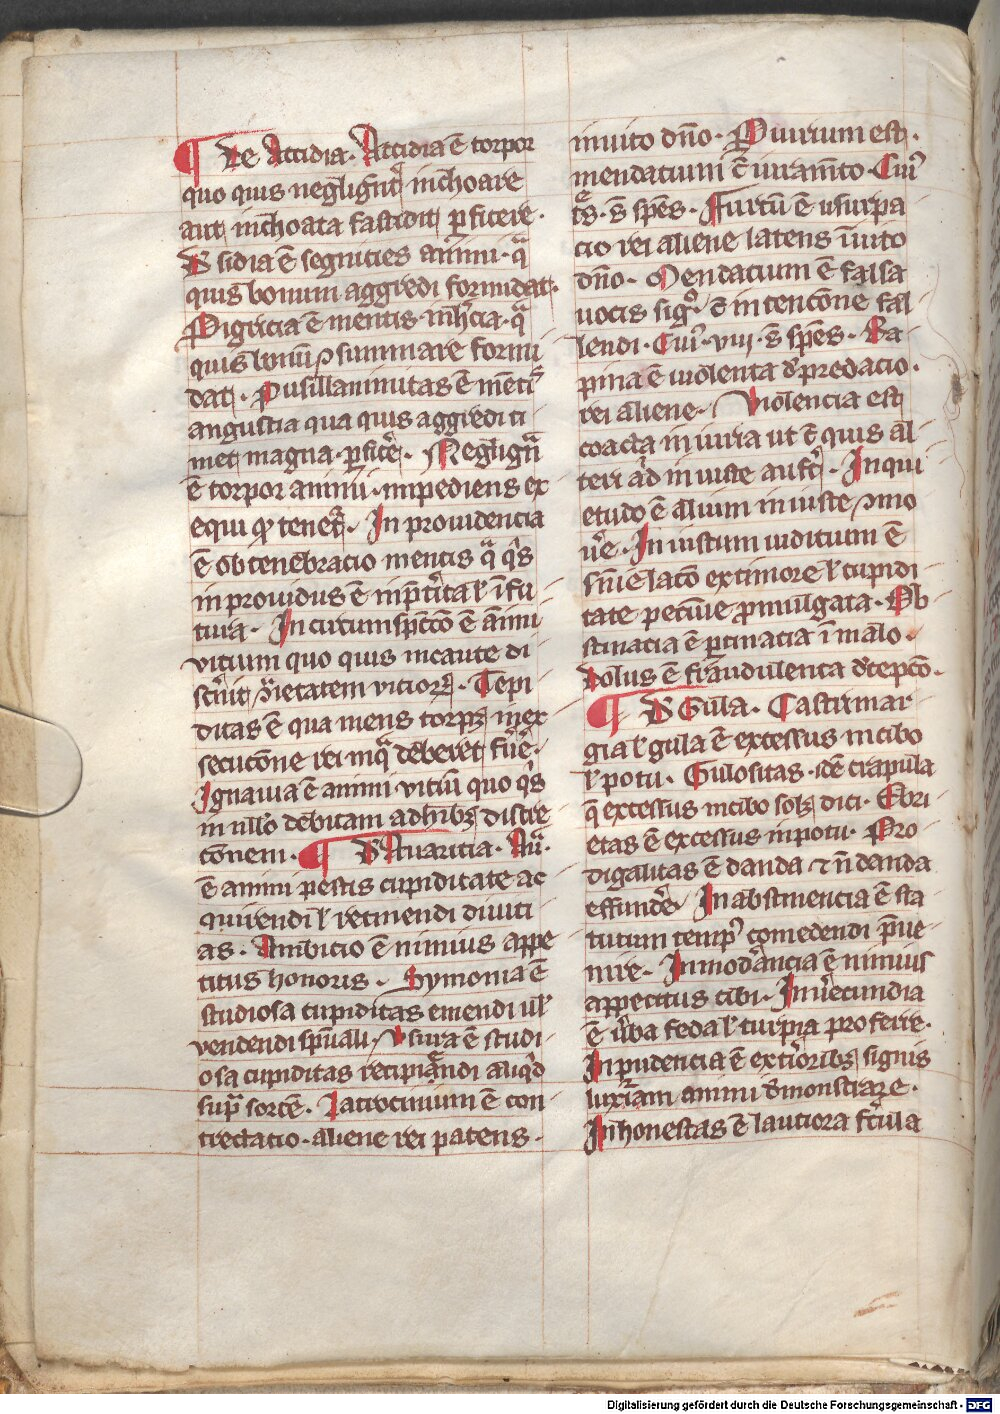 ¶ De Accidia. Accidia ē torpor
quo quis negligent̄ inchoare
aut inchoata fastidit ꝑficere.
Dsidia ē segnicies animi. qᵃ
quis bonum aggredi formidat.
Pigricia ē mentis inhercia. qᵃ
quis bonū ꝯsummare formi
dat. Pusillanimitas ē mētis
angustia qua quis aggredi ti
met magna ꝑficere. Negligētia
ē torpor animi impediens ex
equi ꝙ tenetur. Inprouidencia
ē obtenebracio mentis qᵃ qⁱs
inprouidus ē in pretita ł in fu
tura. In circumspectio ē animi
vitium quo quis incaute di
scernit varietatem viciorꝝ. Tepi
ditas ē qua mens torpꝫ in ex
secucōne rei in qᵃ deberet feruere.
Ignauia ē animi vitiū quo qⁱs
in nullo debitam adhibꝫ discre
cōnem. ¶ D Auaritia. Auᵃ.
ē animi pestis cupiditate ac
quirendi ł retinendi diuiti
as. Ambicio ē nimius appe
titus honoris. Symonia ē
studiosa cupiditas emendi uł
vendendi spūali. Vsura ē studi
osa cupiditas recipiendi aliqⁱd
supᵃ sortē. Latrocinium ē con
trectacio aliene rei patens.
inuito dño. Periurium est.
mendacium cū iuramēto. Cuiᵘˢ
tˢ. sᵗ spēs. Furtū ē usurpa
cio rei aliene latens inuito
dño. Mendacium ē falsa
uocis sigⁿ. cū intencōne fal
lendi. Cuiᵘˢ. viii. sᵗ spēs. Ra
pina ē uiolenta depredacio.
rei aliene. Violencia est
coacta iniuria ut cū quis al
teri aliquid iniuste aufert. Inqui
etudo ē alium iniuste ꝯmo
uere. Iniustum iudicium ē
sentencie lacō ex timore ł cupidi
tate pecunie promulgata. Ob
stinacia ē pertinacia in malo.
Dolus ē fraudulenta decepcō.
¶ D Gula. Castrimar
gia ł gula ē excessus in cibo
ł potu. Gulositas. idē crapula
qᵉ excessus in cibo solꝫ dici. Ebri
etas ē excessus in potu. Pro
digalitas ē danda ⁊ n̄ danda
effundere. Inabstinencia ē sta
tutum tempˢ comedendi pʳue
nire. Inmoderancia ē nimius
appetitus cibi. Inuerecundia
ē ūba feda ł turpia proferre.
Inpudencia ē exterioribꝫ signis
luxuriam animi demonstrare.
Inhonestas ē lautiora fercula
Digitalisierung gefördert durch die Deutsche Forschungsgemeinschaft - DFG